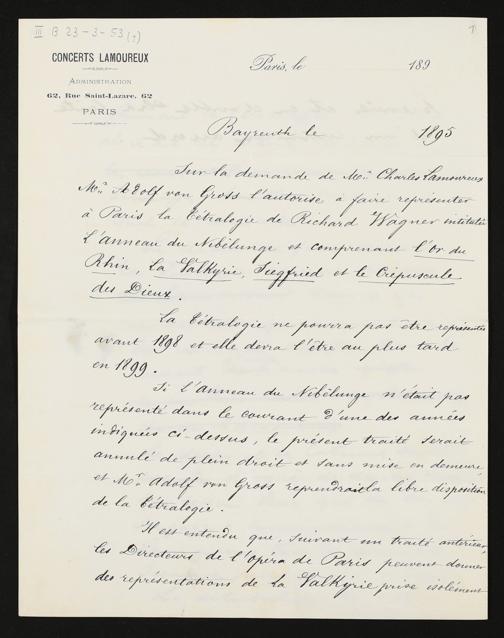 III B 23-3-53 (1)
1
CONCERTS LAMOUREUX
ADMINISTRATION
62, Rue Saint-Lazare, 62
PARIS
Paris, le 189
Bayreuth le 1895
Sur la demande de Mr. Charles Lamoureux
Mr. Adolf von Gross l'autorise a faire representer
à Paris la Tétralogie de Richard Wagner intitulée
L'anneau du Nibelunge et comprenant l'Or du
Rhin, La Valkyrie, Siegfried et le Crépuscule
des Dieux.
La Tétralogie ne pourra pas être représentée
avant 1898 et elle devra l'être au plus tard
en 1899.
Si L'anneau du Nibelunge n'était pas
représenté dans le courant d'une des années
indiquées ci-dessus, le présent traité serait
annulé de plein droit et sans mise en demeure,
et Mr. Adolf von Gross reprendrait la libre disposition
de la Tétralogie.
Il est entendu que, suivant un traité antérieur,
les Directeurs de l'opéra de Paris peuvent donner
des représentations de La Valkyrie prise isolément